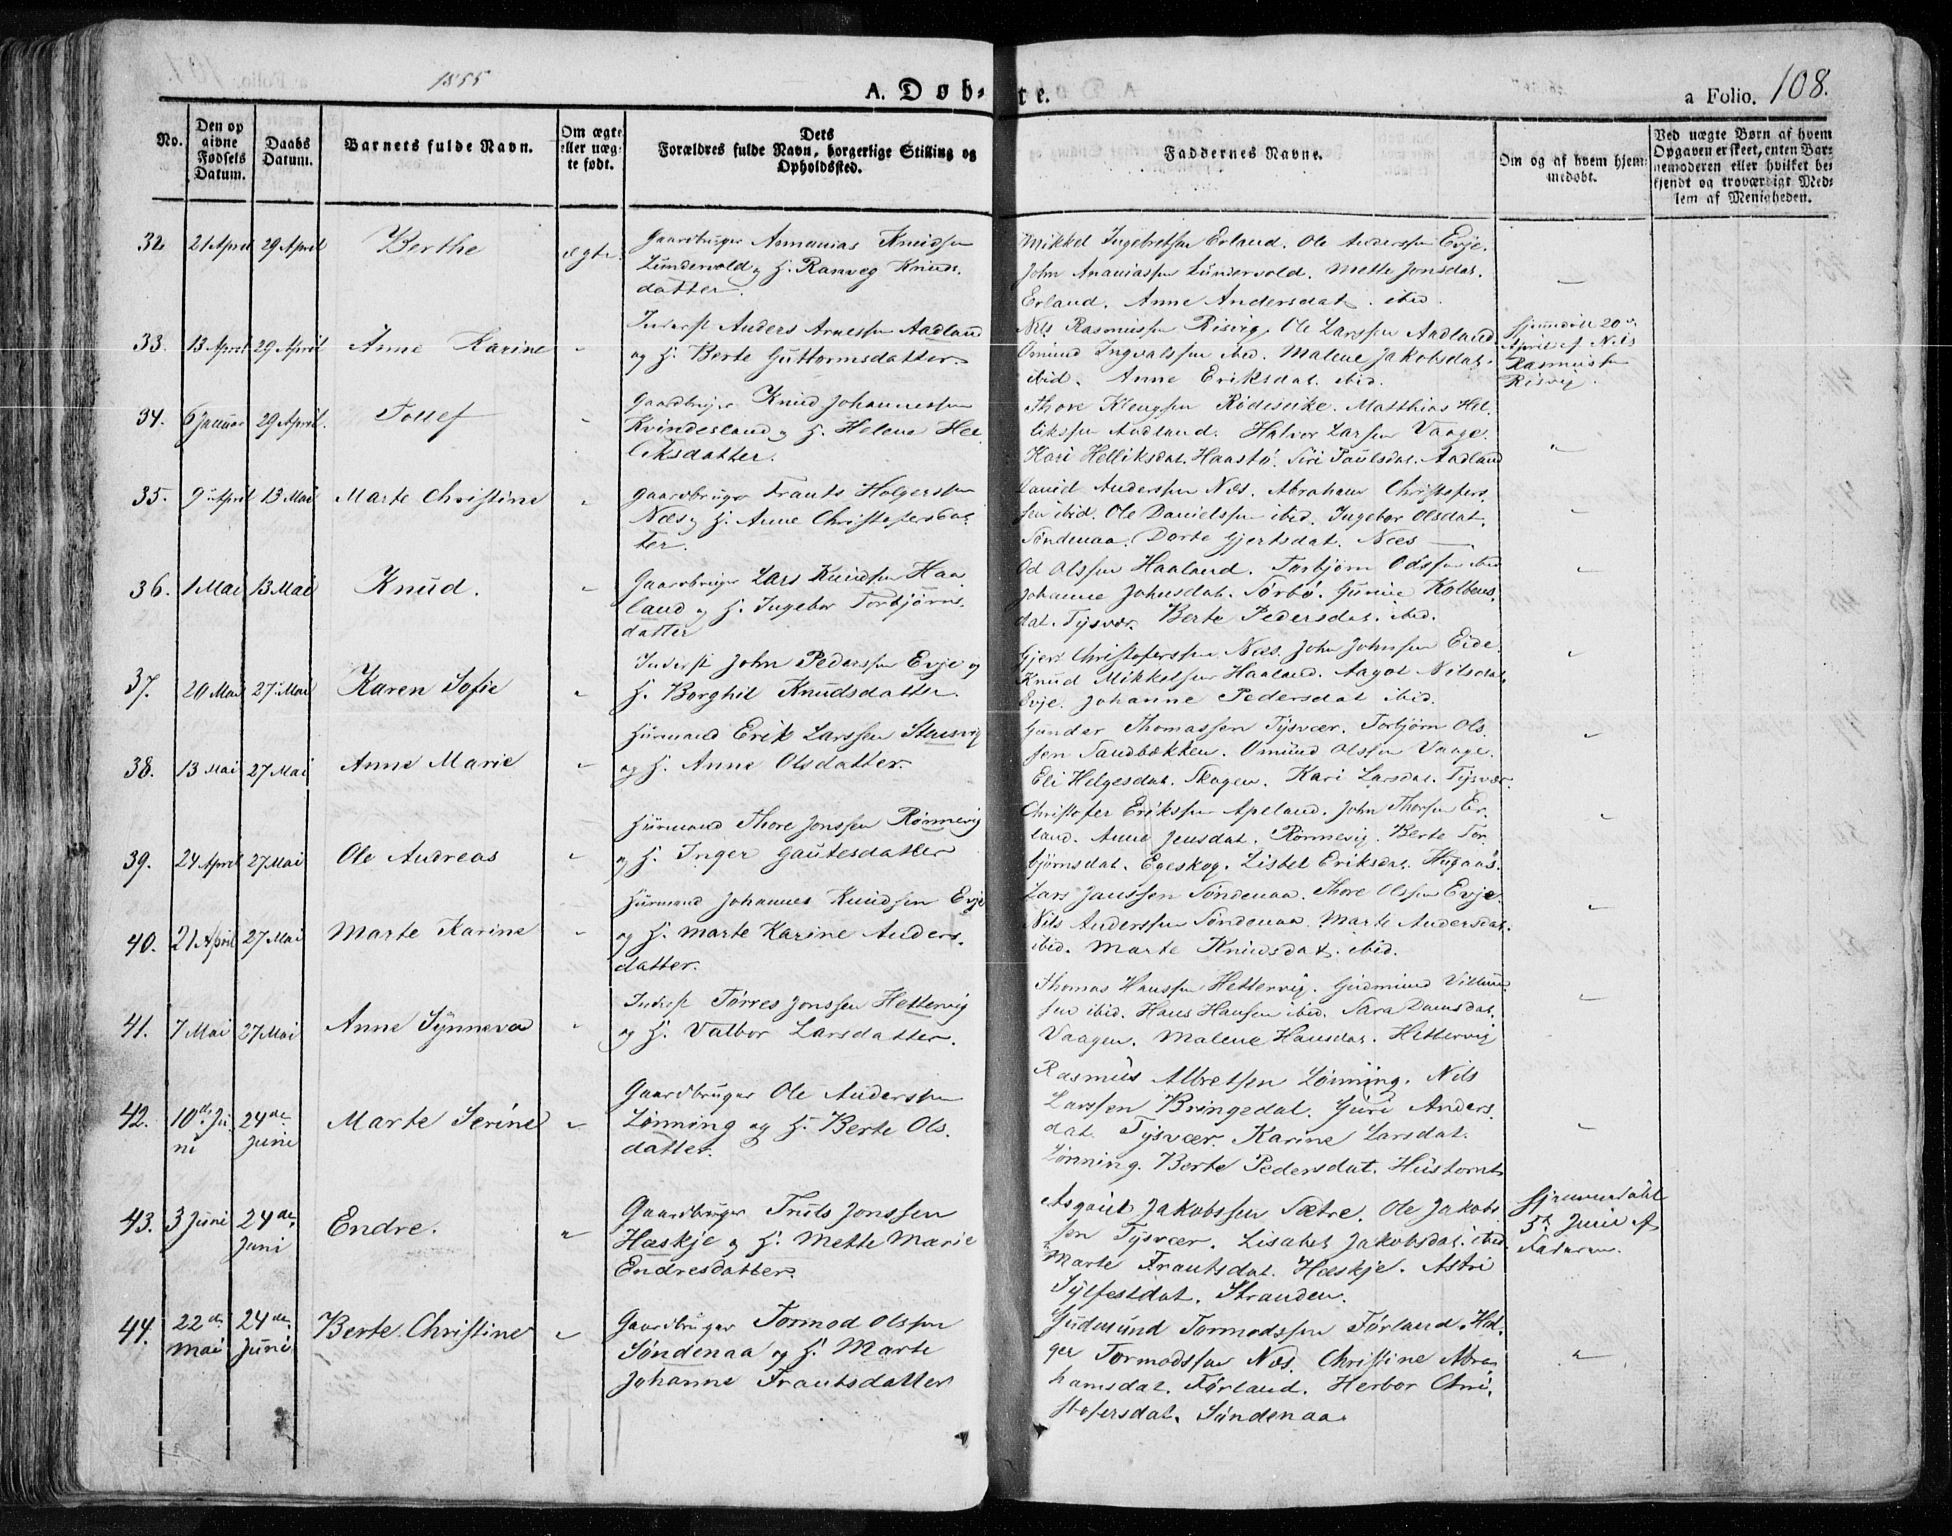 1855
A. Døb-
te.
a Folio. 108.
No.
Den op
givne
Fødsels
Datum.
Daabs
Datum.
Barnets fulde Navn.
Om ægte
eller uæg-
te født.
Dets
Forældres fulde Navn, borgerlige Stilling og
Opholdssted.
Faddernes Navne.
Om og af hvem hjem-
medøbt.
Ved uægte Børn af hvem
Opgaven er skeet, enten Bar-
nemoderen eller hvilket be-
kjendt og troværdigt Med-
lem af Menigheden.
32 21 April 29 April Berthe ægte.
Gaardbruger Annanias Knudsen
Lundevold og H. Ranveg Knuds.
datter.
Mikkel Ingebretsen Erland. Ole Anderssen Evje.
John Ananiassen Lundevold. Mette Jonsdat.
Erland. Anne Andersdat. ibid.
33. 13 April 29 April Anne Karine "
Inderst Anders Arnessen Aadland
og H. Berte Guttormsdatter.
Nils Rasmussen Risvig. Ole Larssen Aadland
Omund Ingvalssen ibid. Malene Jakobsdat.
ibid. Anne Eriksdat. ibid.
Hjemdøbt 20 de
April af Nils
Rasmussen
Risvig.
34. 6 Januar 29 April. Tollef "
Gaardbruger Knud Johannessen
Kvindesland og H. Helene Hel-
liksdatter.
Thore Klengsen Rødseike. Matthias Hel-
likssen Aadland. Halvor Larsen Vaage.
Kari Helliksdat. Haastø. Siri Paulsdat. Aadland
"
35. 9 April 13 Mai Marte Christine "
Gaardbruger Frants Holgerssen
Næs og H. Anne Christofersdat-
ter.
David Anderssen Næs. Abraham Christofers
sen ibid. Ole Danielssen ibid. Ingebor Olsdat.
Søndenaa. Dorte Gjertsdat. Næs
"
36. 1 Mai 13 Mai Knud. "
Gaardbruger Lars Knudsen Haa-
land og H. Ingebor Torbjørns.
datter
Od Olssen Haaland. Torbjørn Odssen ibid
Johanne Johnsdat. Sørbø. Gunine Kolbens.
dat. Tysvær. Berte Pedersdat. ibid.
37. 20 Mai 27 Mai Karen Sofie "
Inderst John Pederssen Evje og
H. Borghil Knudsdatter.
Gjert Christoferssen Næs. John Johnsen Eide.
Knud Mikkelsen Haaland. Aagot Nilsdat.
Evje. Johanne Pedersdat. ibid.
38. 13 Mai 27 Mai Anne Marie "
Huusmand Erik Larssen Stausvig
og H. Anne Olsdatter.
Gunder Thomassen Tysvær. Torbjørn Ols-
sen Sandbækken. Omund Olssen Vaage.
Eli Helgesdat. Skogen. Kari Larsdat. Tysvær.
39. 24 April 27 Mai Ole Andreas "
Huusmand Thore Jonssen Rønnevig
og H. Inger Gautesdatter
Christofer Erikssen Apeland. John Thorsen Er-
land. Anne Jensdat. Rønnevig. Berte Tor-
bjørnsdat. Egeskog. Lisbet Eriksdat. Hugaas.
40. 21 April 27 Mai Marte Karine "
Huusmand Johannes Knudssen Evje
og H. Marte Karine Anders.
datter.
Lars Janssen Søndenaa. Thore Olssen Evje.
Nils Anderssen Søndenaa. Marte Andersdat.
ibid. Marte Knudsdat. ibid.
41. 7 Mai 27 Mai Anne Synneva "
Inderst Tørres Jonssen Hettervig
og H. Valbor Larsdatter.
Thomas Hanssen Hettervig. Gudmund Villum
sen ibid. Hans Hansen ibid. Sara Damsdat.
Vaagen. Malene Hansdat. Hettervig
42. 10 de Ju-
ni 24 de
Juni Marte Serine "
Gaardbruger Ole Anderssen
Lønning og H. Berte Ols.
datter.
Rasmus Albretsen Lønning. Nils
Larssen Bringedal. Guri Anders.
dat. Tysvær. Karine Larsdat.
Lønning. Berte Pedersdat. Hustornt
43. 3 Juni 24 de
Juni Endre. "
Gaardbruger Truls Jonssen
Hæskje og H. Mette Marie
Endresdatter.
Asgout Jakobssen Sætre. Ole Jakobs
sen Tysvær. Lisabet Jakobsdat. ibid.
Marte Frantsdat. Hæskje. Astri
Sylfestdat. Stranden.
Hjemmedøbt
5 te Juni af
Faderen.
44. 22 de
Mai 24 de
Juni Berte Christine "
Gaardbruger Tormod Olssen
Søndenaa og H. Marte
Johanne Frantsdatter
Gudmund Tormodssen Førland. Hol-
ger Tormodssen Næs. Christine Abra-
hamsdat. Førland. Herbor Chri-
stofersdat. Søndenaa.
"